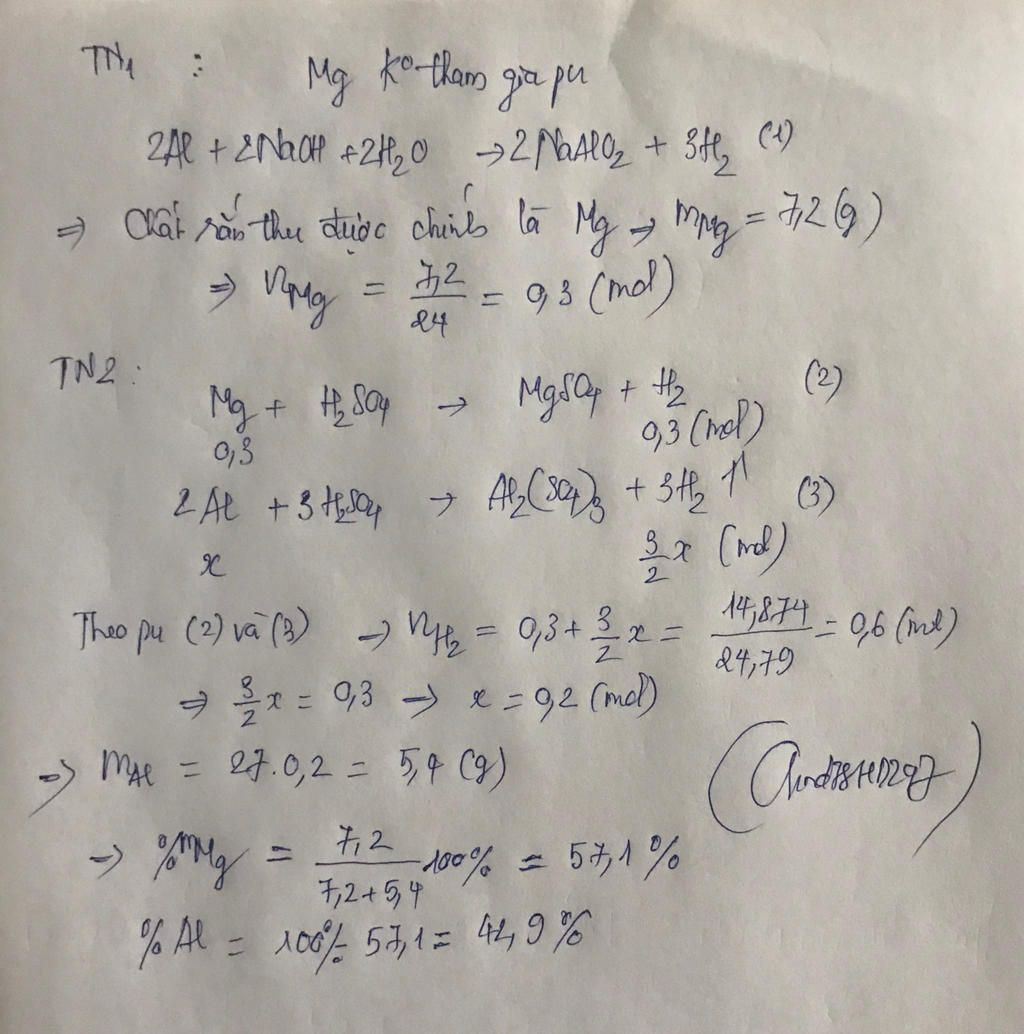 TN1 : Mg ko tham gia pu
2Al + 2NaOH + 2H2O → 2NaAlO2 + 3H2 (1)
⇒ Chất rắn thu được chính là Mg → mMg = 7,2 (g)
⇒ nMg = 7,2/24 = 0,3 (mol)
TN2 :
Mg + H2SO4 → MgSO4 + H2 (2)
0,3 0,3 (mol)
2Al + 3H2SO4 → Al2(SO4)3 + 3H2 ↑ (3)
x 3/2 x (mol)
Theo pu (2) và (3) → nH2 = 0,3 + 3/2 x = 14,874/24,79 = 0,6 (mol)
⇒ 3/2 x = 0,3 → x = 0,2 (mol)
⇒ mAl = 27.0,2 = 5,4 (g)
→ %mMg = 7,2/(7,2+5,4) .100% = 57,1%
%Al = 100% - 57,1 = 42,9%